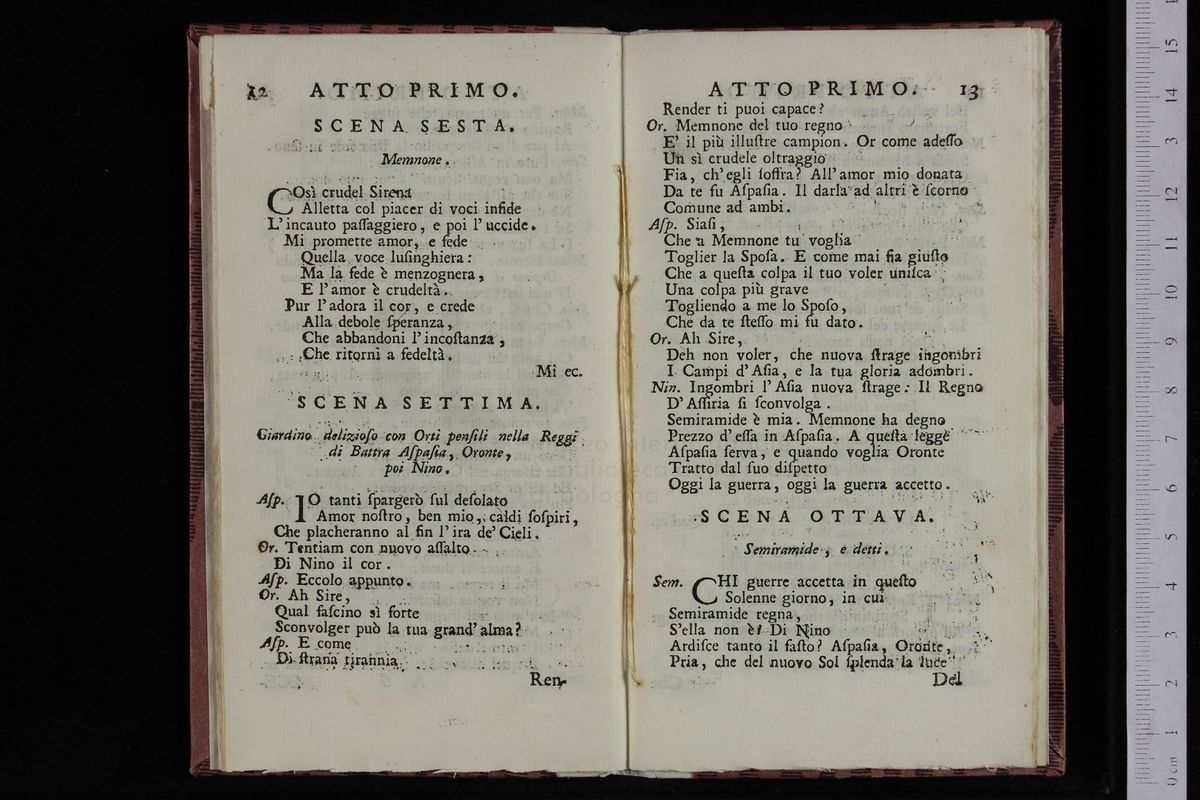 12 ATTO PRIMO.
SCENA SESTA.
Memnone.
COsì crudel Sirena
Alletta col piacer di voci infide
L'incauto paſſaggiero, e poi l'uccide.
Mi promette amor, e fede
Quella voce luſinghiera:
Ma la fede è menzognera,
E l'amor è crudeltà.
Pur l'adora il cor, e crede
Alla debole ſperanza,
Che abbandoni l'incoſtanza,
Che ritorni a fedeltà.
Mi ec.
SCENA SETTIMA.
Giardino delizioſo con Orti penſili nella Reggi
di Battra Aſpaſia, Oronte,
poi Nino.
Aſp. IO tanti ſpargerò ſul deſolato
Amor noſtro, ben mio, caldi ſoſpiri,
Che placheranno al fin l'ira de' Cieli.
Or. Tentiam con nuovo aſſalto
Di Nino il cor.
Aſp. Eccolo appunto.
Or. Ah Sire,
Qual faſcino sì forte
Sconvolger può la tua grand'alma?
Aſp. E come
Di ſtrana tirannia
Ren-
ATTO PRIMO. 13
Render ti puoi capace?
Or. Memnone del tuo regno
E' il più illuſtre campion. Or come adeſſo
Un sì crudele oltraggio
Fia, ch'egli ſoffra? All'amor mio donata
Da te fu Aſpaſia. Il darla ad altri è ſcorno
Comune ad ambi.
Aſp. Siaſi,
Che a Memnone tu voglia
Toglier la Spoſa. E come mai fia giuſto
Che a queſta colpa il tuo voler uniſca
Una colpa più grave
Togliendo a me lo Spoſo,
Che da te ſteſſo mi fu dato.
Or. Ah Sire,
Deh non voler, che nuova ſtrage ingombri
I Campi d'Aſia, e la tua gloria adombri.
Nin. Ingombri l'Aſia nuova ſtrage: Il Regno
D'Aſſiria ſi ſconvolga.
Semiramide è mia. Memnone ha degno
Prezzo d'eſſa in Aſpaſia. A queſta legge
Aſpaſia ſerva, e quando voglia Oronte
Tratto dal ſuo diſpetto
Oggi la guerra, oggi la guerra accetto.
SCENA OTTAVA.
Semiramide, e detti.
Sem. CHI guerre accetta in queſto
Solenne giorno, in cui
Semiramide regna,
S'ella non è? Di Nino
Ardiſce tanto il faſto? Aſpaſia, Oronte,
Pria, che del nuovo Sol ſplenda la luce
Del